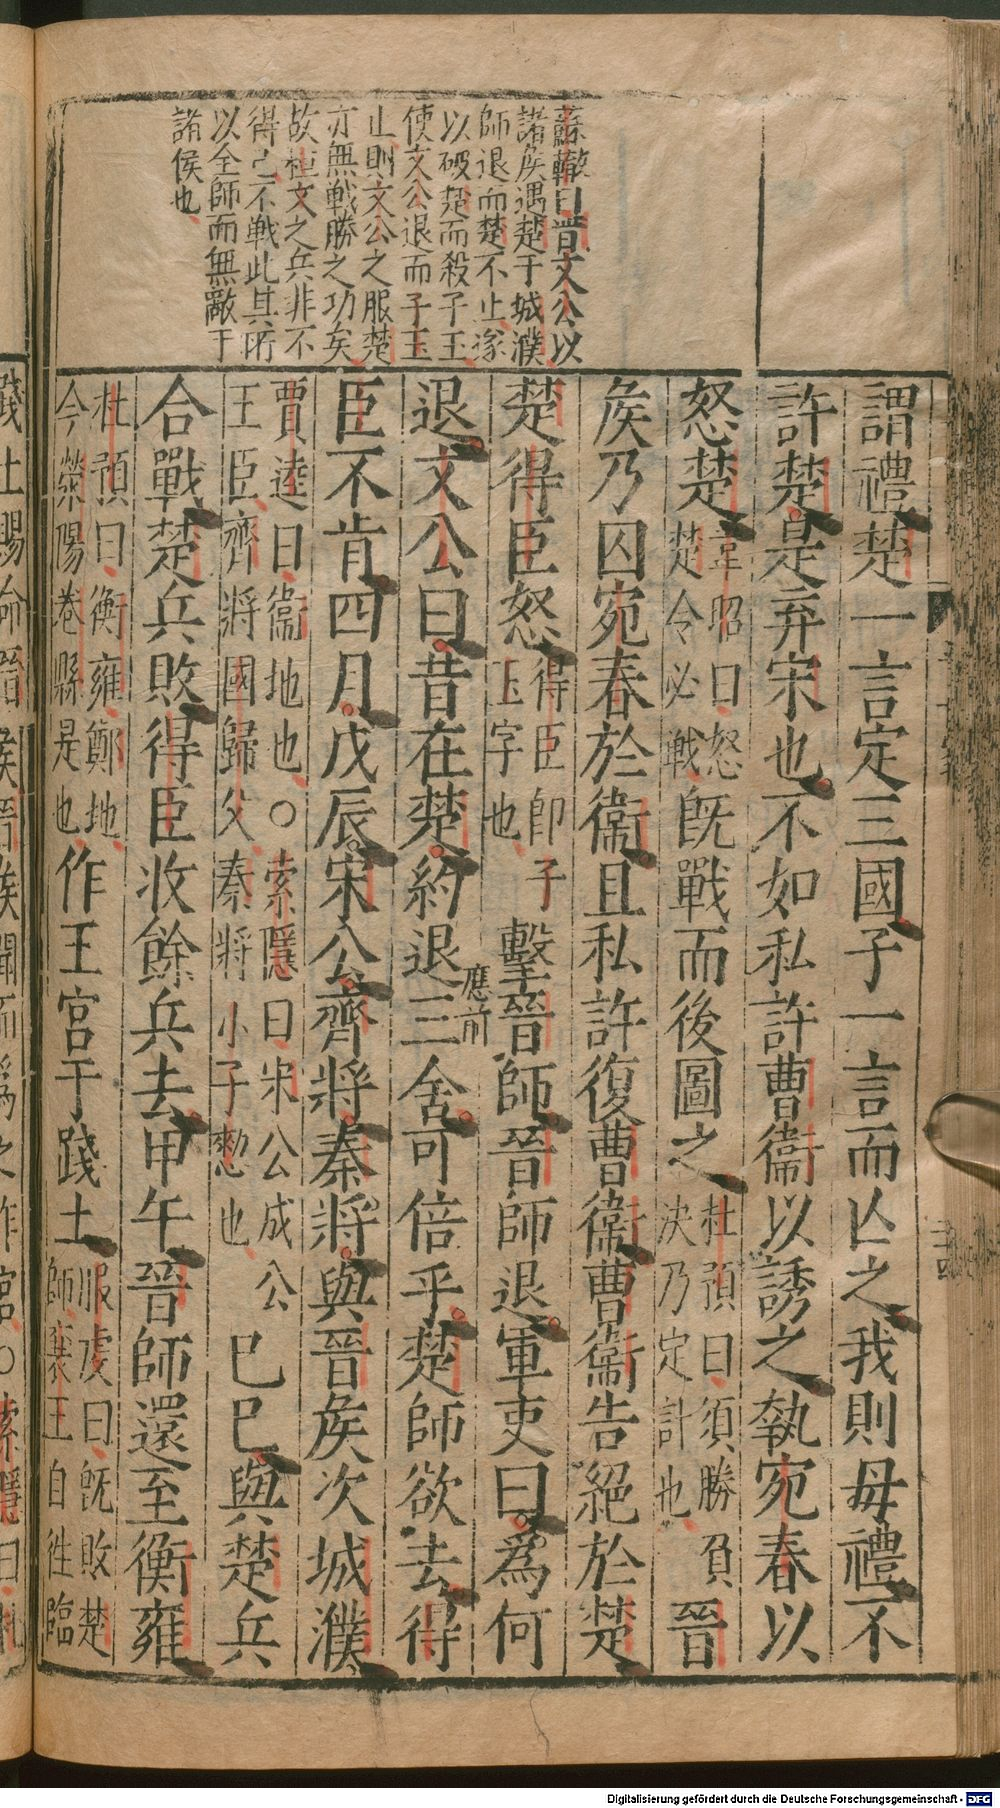 蘇轍曰晋文公以
諸侯遇楚于城濮
師退而楚不止遂
以破楚而殺子玉
使文公退而子玉
止則文公之服楚
亦無戦勝之功矣
故桓文之兵非不
得已不戦此其所
以全師而無敵于
諸侯也
謂禮楚一言定三國子一言而亾之我則毋禮不
許楚是弃宋也不如私許曹衞以誘之執宛春以
怒楚韋昭曰怒楚令必戦既戰而後圖之杜預曰須勝負決乃定計也晉
矦乃囚宛春於衞且私許復曹衞曹衞告絕於楚
楚得臣怒得臣即子玉字也擊晉師晉師退軍吏曰爲何
退文公曰昔在楚約退三舍可倍乎楚師欲去得
應前
臣不肯四月戊辰宋公齊將秦將與晉矦次城濮
賈逵曰衞地也○索隱曰宋公成公王臣齊將國歸父秦將小子憗也巳巳與楚兵
合戰楚兵敗得臣收餘兵去甲午晉師還至衡雍
杜預曰衡雍鄭地今滎陽卷縣是也作王宮于踐土服虔曰既敗楚師襄王自徃臨
踐土賜命晉矦晉矦聞而爲之作宮○索隱曰
Digitalisierung gefördert durch die Deutsche Forschungsgemeinschaft - DFG